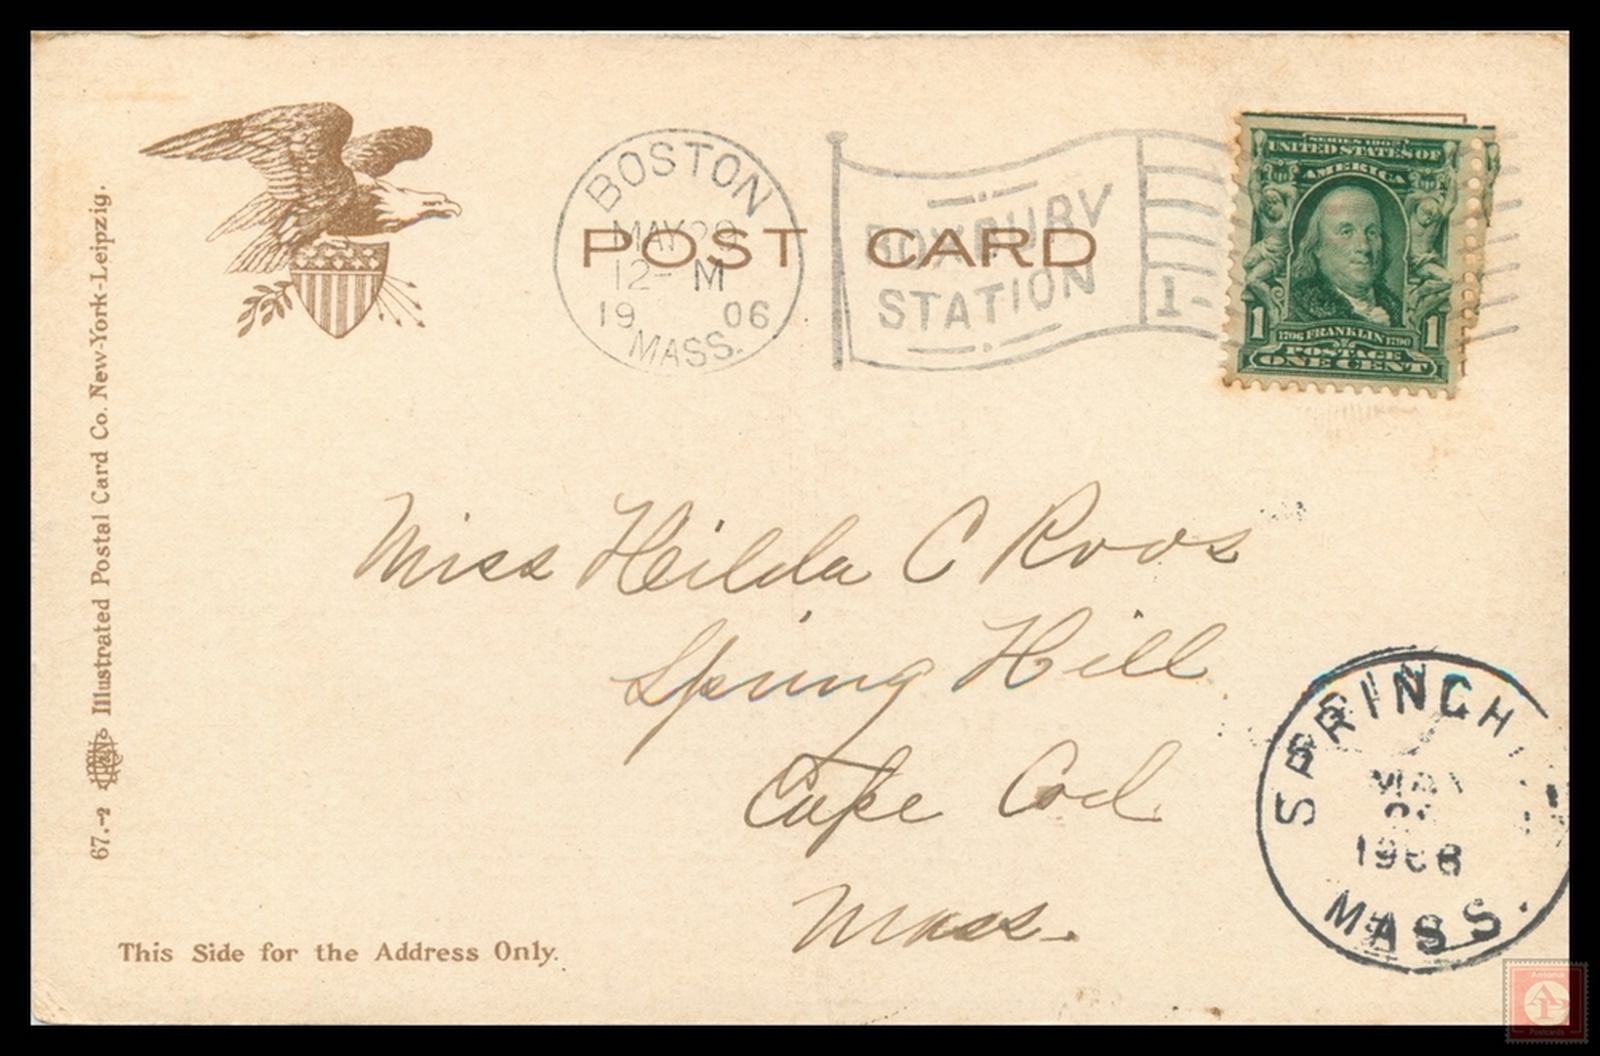 POST CARD
BOSTON
MAY 29
12- M
19 06
MASS.
ROXBURY
STATION
1-
SERIES 1902
UNITED STATES OF
AMERICA
1 1
1706 FRANKLIN 1790
POSTAGE
ONE CENT
Miss Hilda C Roos
Spring Hill
Cape Cod
Mass.
SPRING H
MAY
MASS.
67.-2 Illustrated Postal Card Co. New-York-Leipzig.
This Side for the Address Only.
Postcards